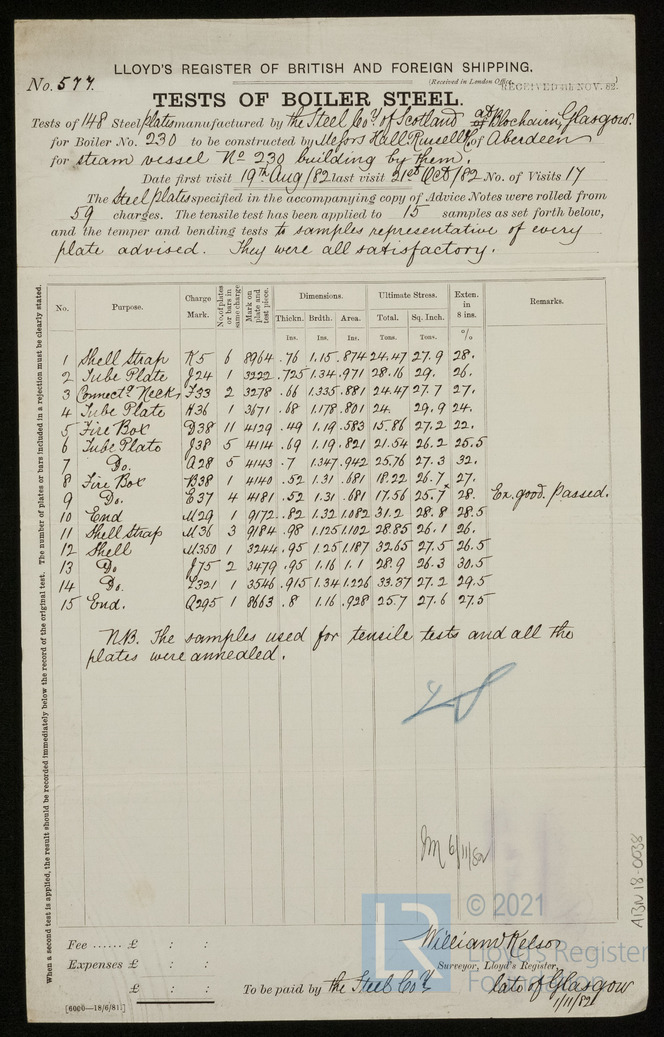 LLOYD'S REGISTER OF BRITISH AND FOREIGN SHIPPING.
No. 577. (Received in London Office, RECEIVED NOV. 82.)
TESTS OF BOILER STEEL.
Tests of 148 Steel plates manufactured by the Steel Coy. of Scotland at Blochairn, Glasgow.
for Boiler No. 230 to be constructed by Messrs Hall Russell & Co of Aberdeen
for steam vessel No 230 building by them.
Date first visit 19th Aug/82 last visit 21st Oct/82 No. of Visits 17
The Steel plates specified in the accompanying copy of Advice Notes were rolled from
59 charges. The tensile test has been applied to 15 samples as set forth below,
and the temper and bending tests to samples representative of every
plate advised. They were all satisfactory.
When a second test is applied, the result should be recorded immediately below the record of the original test. The number of plates or bars included in a rejection must be clearly stated.
No. Purpose. Charge Mark. No. of plates or bars in same charge Mark on plate and test piece. Dimensions. Ultimate Stress. Exten. in 8 ins. Remarks.
Thickn. Brdth. Area. Total. Sq. Inch.
Ins. Ins. Ins. Tons. Tons. %
1 Shell Strap K5 6 8964 .76 1.15 .874 24.47 27.9 28.
2 Tube Plate J24 1 3222 .725 1.34 .971 28.16 29. 26.
3 Connectg Necks F33 2 3278 .66 1.335 .881 24.47 27.7 27.
4 Tube Plate H36 1 3671 .68 1.178 .801 24. 29.9 24.
5 Fire Box D38 11 4129 .49 1.19 .583 15.86 27.2 22.
6 Tube Plate J38 5 4114 .69 1.19 .821 21.54 26.2 25.5
7 Do. A28 5 4143 .7 1.347 .942 25.76 27.3 32.
8 Fire Box B38 1 4140 .52 1.31 .681 18.22 26.7 27.
9 Do. E37 4 4181 .52 1.31 .681 17.56 25.7 x 28. Ex. good. Passed.
10 End M29 1 9172 .82 1.32 1.082 31.2 28.8 28.5
11 Shell Strap M36 3 9184 .98 1.125 1.102 28.85 26.1 26.
12 Shell M350 1 3244 .95 1.25 1.187 32.65 27.5 26.5
13 Do J75 2 3479 .95 1.16 1.1 28.9 26.3 30.5
14 Do. L321 1 3546 .915 1.34 1.226 33.37 27.2 29.5
15 End. Q295 1 8663 .8 1.16 .928 25.7 27.6 27.5
N.B. The samples used for tensile tests and all the
plates were annealed.
48
6/11/82
ABN18-0038
© 2021
LR
Lloyd's Register
Foundation
Fee ...... £ : :
William Kelso
Expenses £ : :
Surveyor, Lloyd's Register,
£ : :
To be paid by the Steel Coy. late of Glasgow
1/11/82
[6000—18/6/81]